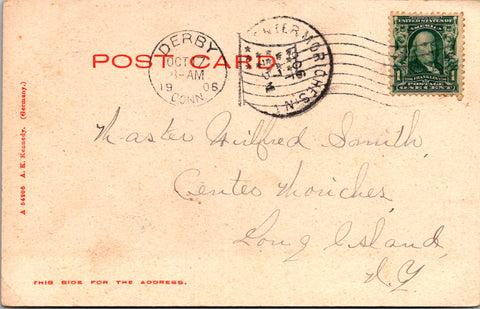 DERBY
OCT
8-AM
19 06
CONN.
CENTER MORICHES N.Y.
OCT
1906
UNITED STATES OF AMERICA
FRANKLIN
POSTAGE
1 1
ONE CENT
POST CARD
A 54206 A. K. Kennedy. (Germany.)
Master Wilfred Smith
Center Moriches
Long Island
N.Y.
THIS SIDE FOR THE ADDRESS.